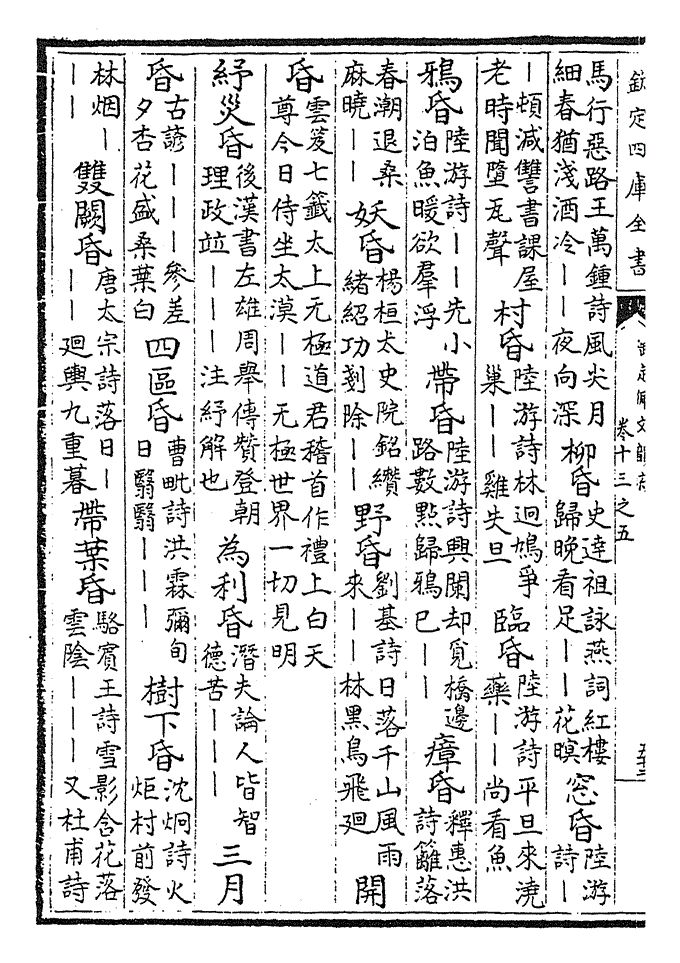 欽定四庫全書
御定佩文韻府
卷十三之五
馬行惡路王萬鍾詩風尖月細春猶淺酒冷——夜向深 柳昏 史達祖詠燕詞紅樓歸晚看足——花暝 窓昏 陸游詩—
—頓減讐書課屋老時聞墮瓦聲 村昏 陸游詩林迴鳩爭巢——雞失旦 臨昏 陸游詩平旦來澆藥——尚看魚
鴉昏 陸游詩——先小泊魚暖欲羣浮 帶昏 陸游詩興闌却覓橋邊路數點歸鴉已—— 瘴昏 釋惠洪詩籬落
春潮退桑麻曉—— 妖昏 楊桓太史院銘纘緒紹功剗除—— 野昏 劉基詩日落千山風雨來——林黑鳥飛廻 開
昏 雲笈七籤太上无極道君稽首作禮上白天尊今日侍坐太漠——无極世界一切見明
紓災昏 後漢書左雄周舉傳贊登朝理政竝———注紓解也 為利昏 潛夫論人皆智德苦——— 三月
昏 古諺———參差夕杏花盛桑葉白 四區昏 曹毗詩洪霖彌旬日翳翳——— 樹下昏 沈炯詩火炬村前發
林烟——— 雙闕昏 唐太宗詩落日———廻輿九重暮 帶葉昏 駱賓王詩雪影含花落雲陰———又杜甫詩